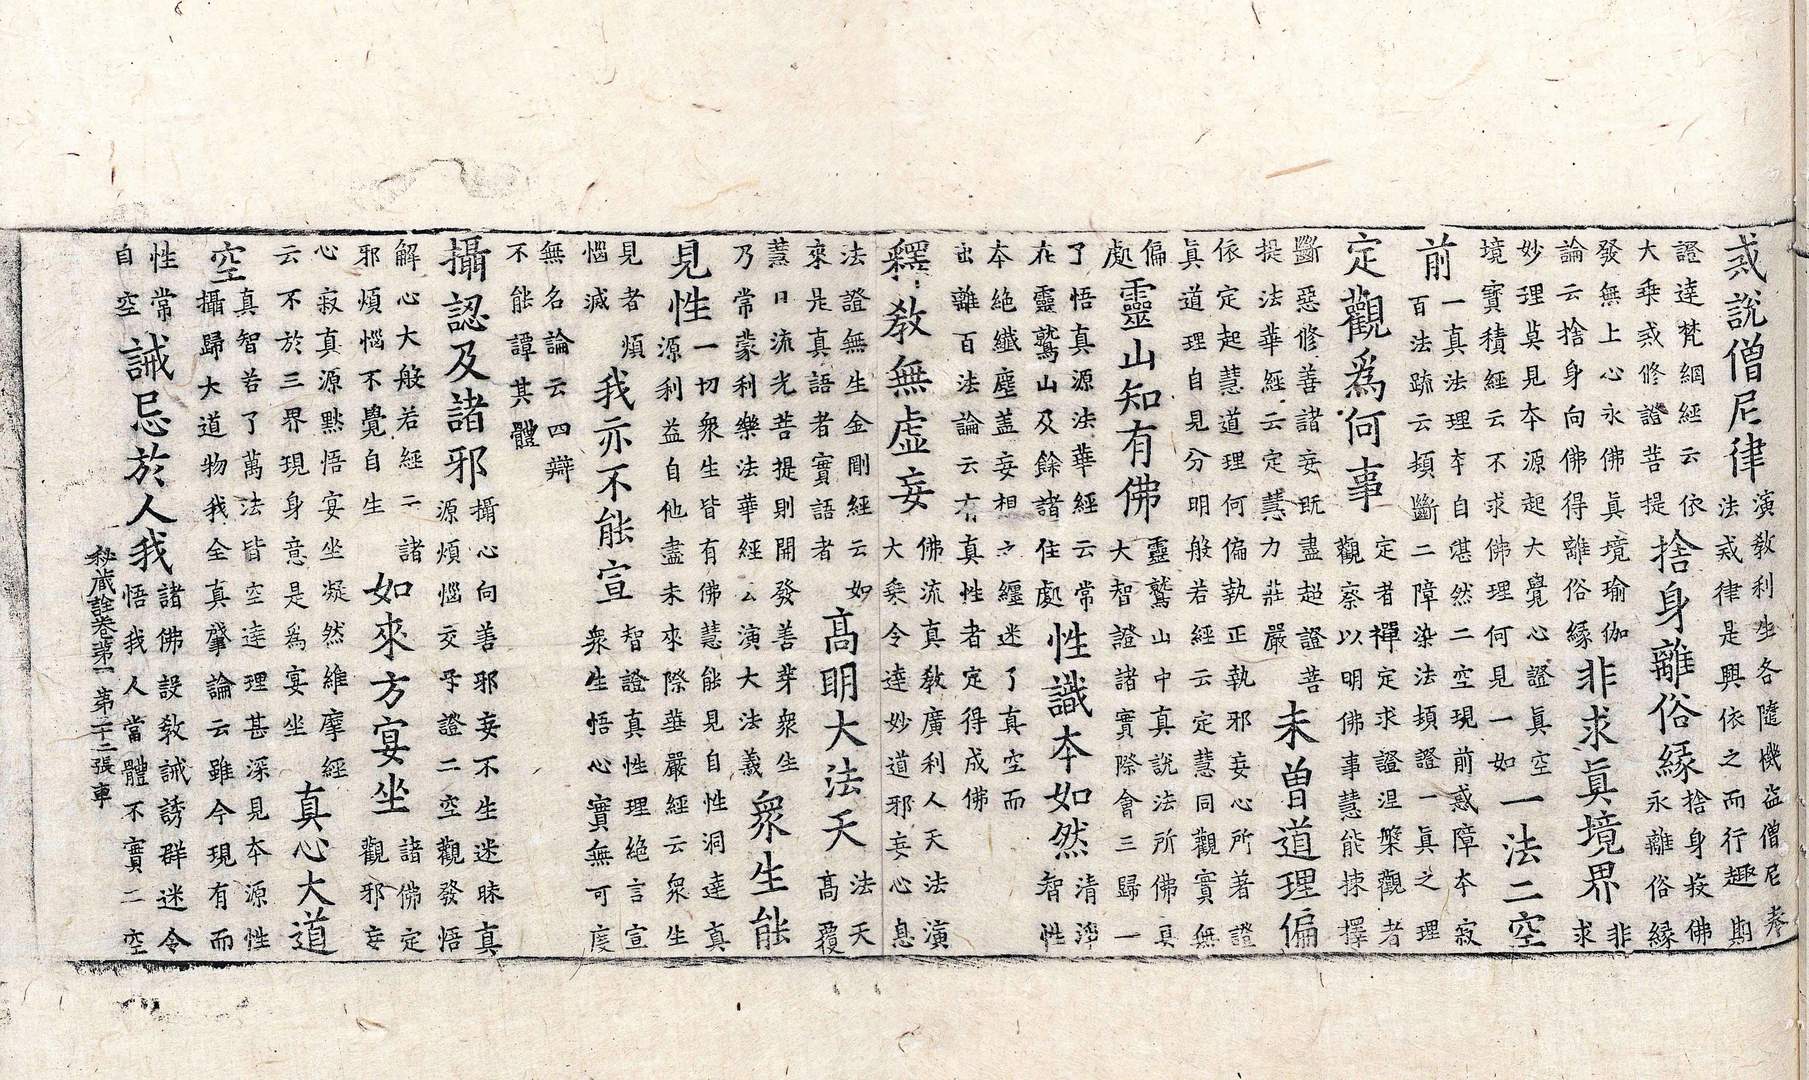 戒說僧尼律
演教利生各隨機益僧尼奉
法戒律是興依之而行趣期
證達梵綱經云依
大乘戒修證菩提
捨身離俗縁
捨身投佛
永離俗縁
發無上心永佛真境瑜伽
論云捨身向佛得離俗縁
非求真境界
非
求
妙理莫見本源起大覺心證真空
境寶積經云不求佛理何見一如
一法二空
前
一真法理本自湛然二空現前惑障本寂
百法疏云頓斷二障染法頓證一真之理
定觀爲何事
定者禪定求證涅槃觀者
觀察以明佛事慧能揀擇
斷惡修善諸妄既盡超證菩
提法華經云定慧力莊嚴
未曾道理偏
依定起慧道理何偏執正執邪妄心所著證
真道理自見分明般若經云定慧同觀實無
偏
處
靈山知有佛
靈鷲山中真說法所佛具
大智證諸實際會三歸一
了悟真源法華經云常
在靈鷲山及餘諸住處
性識本如然
清淨
智性
本絶纖塵盖妄相之纏迷了真空而
出離百法論云有真性者定得成佛
釋教無虛妄
佛流真教廣利人天法演
大乘令達妙道邪妄心息
法證無生金剛經云如
來是真語者實語者
髙明大法天
法天
髙覆
慧日流光菩提則開發善芽衆生
乃常蒙利樂法華經云演大法義
衆生能
見性
一切衆生皆有佛慧能見自性洞達真
源利益自他盡未來際華嚴經云衆生
見者煩
惱滅
我亦不能宣
智證真性理絶言宣
衆生悟心實無可度
無名論云四辯
不能譚其體
攝認及諸邪
攝心向善邪妄不生迷昧真
源煩惱交爭證二空觀發悟
解心大般若經云諸
邪煩惱不覺自生
如來方宴坐
諸佛定
觀邪妄
心寂真源㸃悟宴坐凝然維摩經
云不於三界現身意是爲宴坐
真心大道
空
真智若了萬法皆空達理甚深見本源性
攝歸大道物我全真肇論云雖今現有而
性常
自空
誡忌於人我
諸佛設教誡誘群迷令
悟我人當體不實二空
秘藏詮卷第一 第二十二張 車